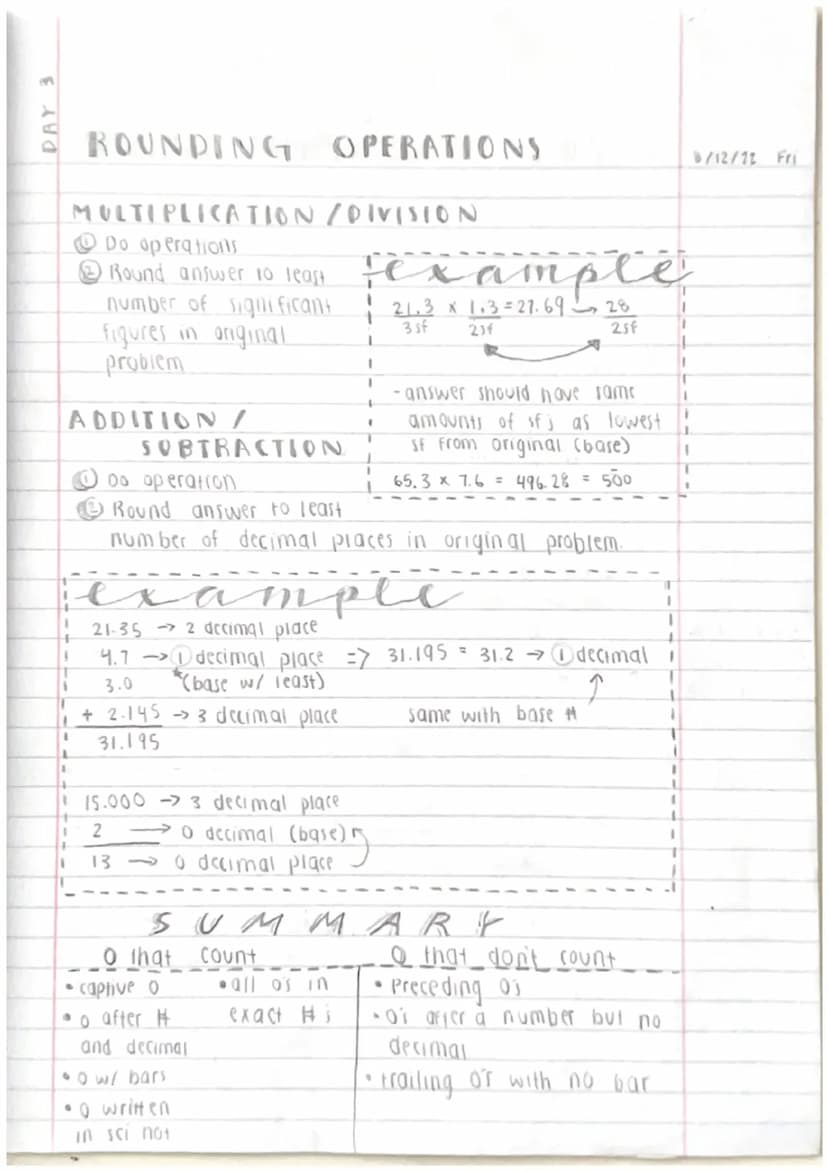 DAY 3
ROUNDING OPERATIONS
/12/22 Fri
MULTIPLICATION / DIVISION
① Do operations
② Round answer to least
number of significant
figures in original
problem
example
21.3 x 1.3 = 27.69 → 28
3sf 2sf 2sf
- answer should have same
amounts of sfs as lowest
sf from original (base)
65.3 x 7.6 = 496.28 = 50̄0
ADDITION /
SUBTRACTION
① Do operation
② Round answer to least
number of decimal places in original problem.
example
21.35 → 2 decimal place
4.7 → ① decimal place => 31.195 = 31.2 → ① decimal
3.0 *(base w/ least)
+ 2.145 → 3 decimal place same with base #
31.195
15.000 → 3 decimal place
2 → 0 decimal (base)
13 → 0 decimal place
SUMMARY
0 that count 0 that don't count
• captive 0 • all 0's in • Preceding 0s
• 0 after # exact #s • 0's after a number but no
and decimal decimal
• 0 w/ bars • trailing 0's with no bar
• 0 written
in sci not